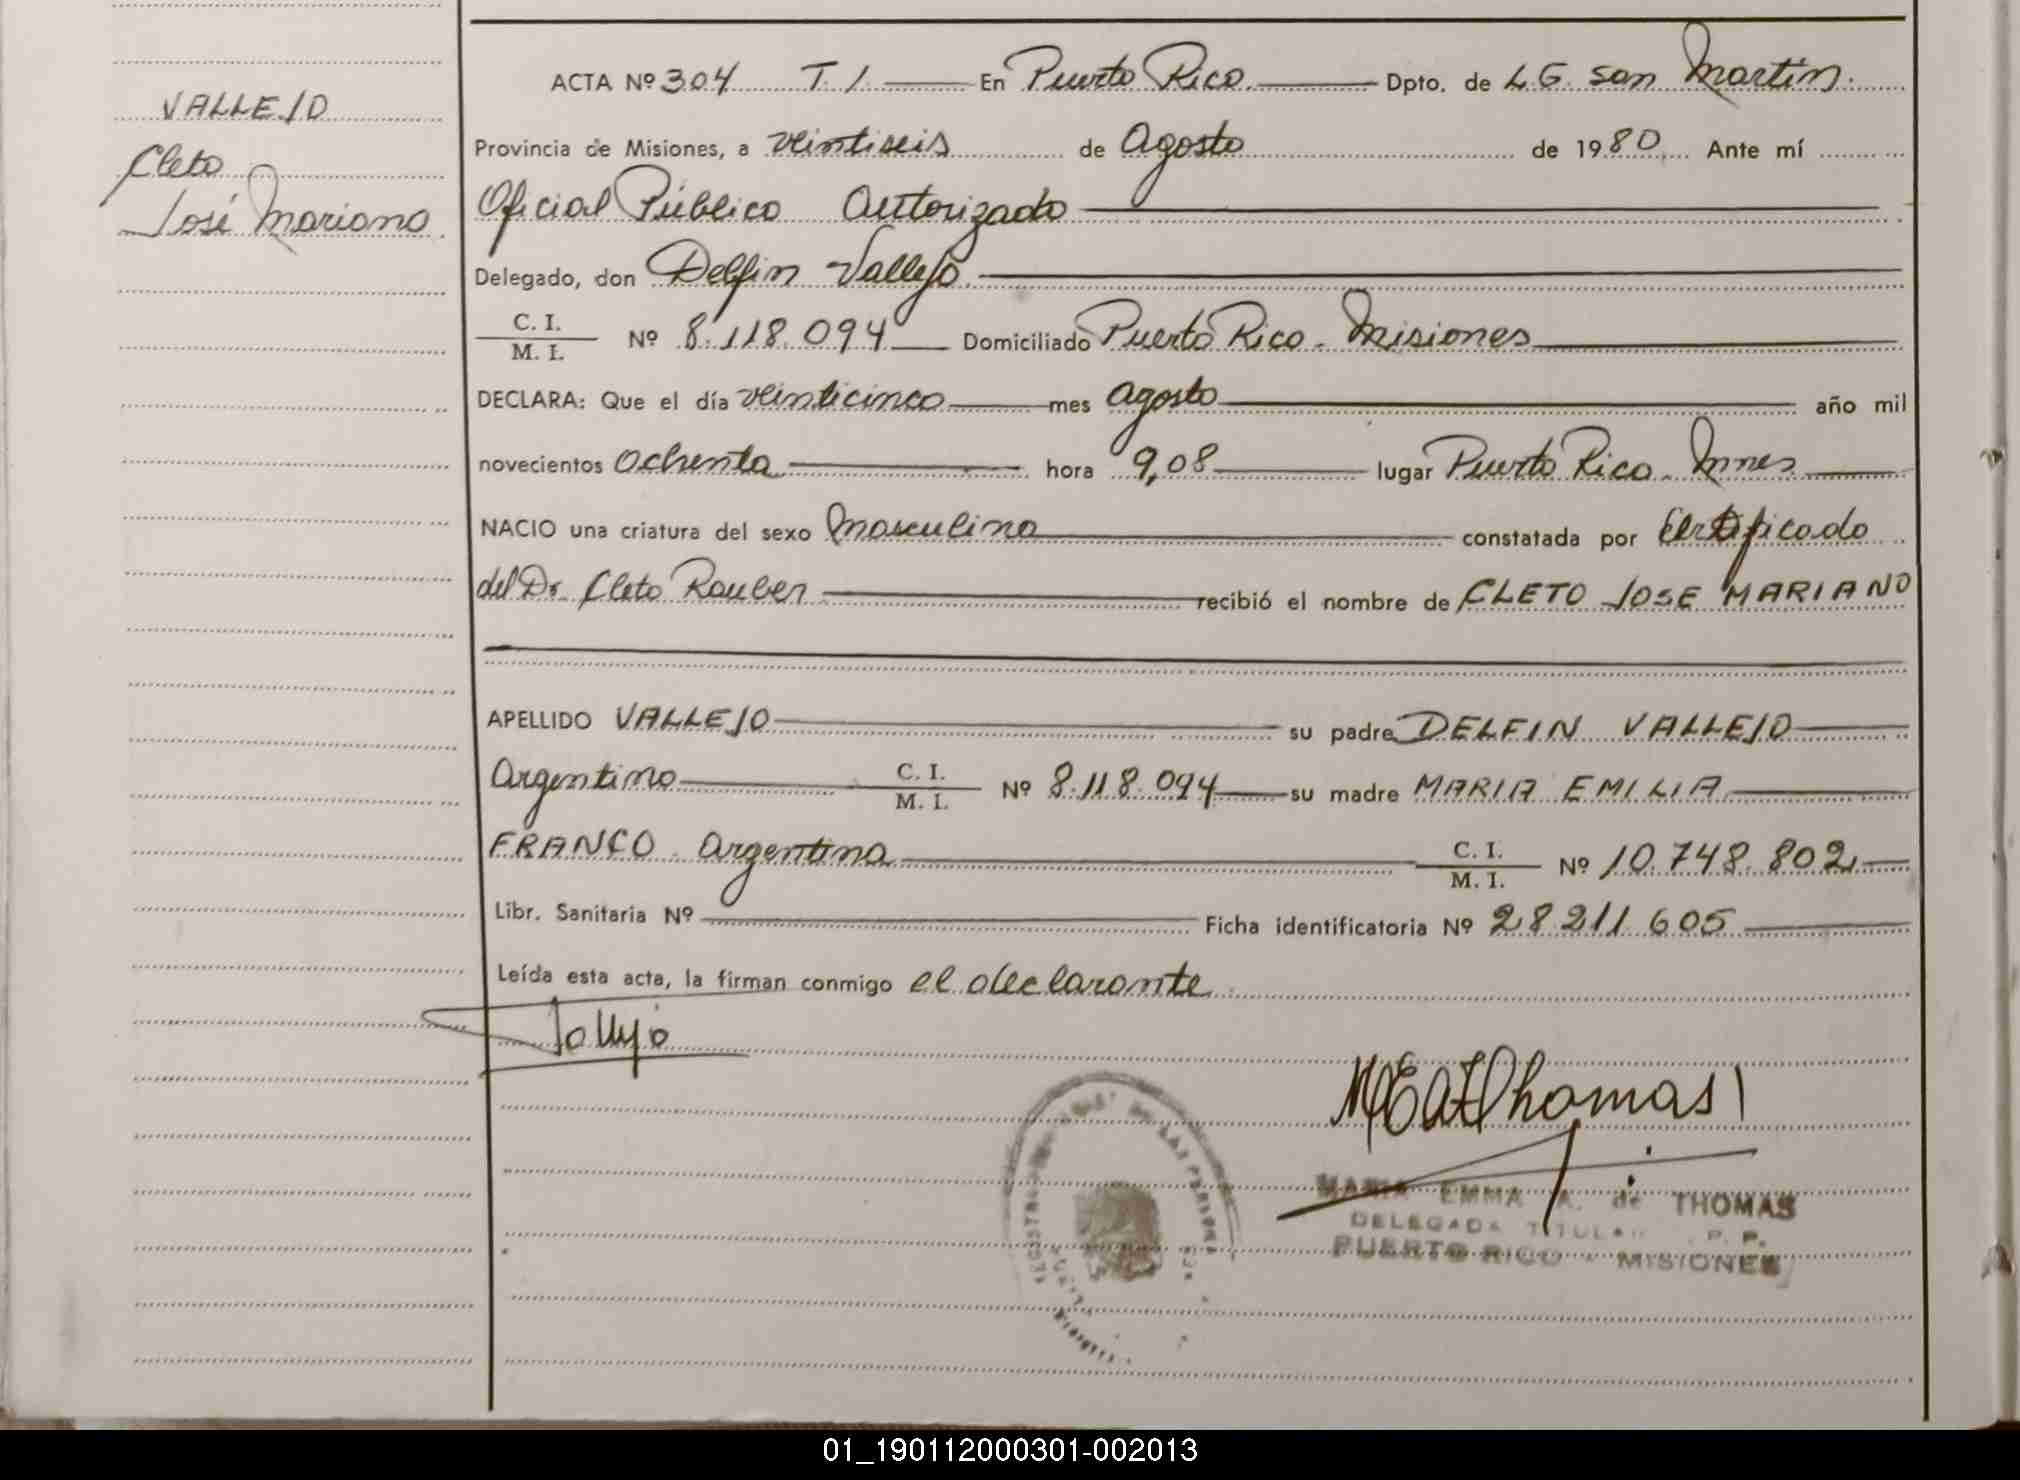 VALLEJO
Cleto
José Mariano
ACTA Nº 304 T. 1. En Puerto Rico. Dpto. de L.G. San Martín.
Provincia de Misiones, a veintiseis de Agosto de 1980. Ante mí
Oficial Público Autorizado
Delegado, don Delfin Vallejo.
C. I.
M. I. Nº 8.118.094 Domiciliado Puerto Rico. Misiones
DECLARA: Que el día veinticinco mes agosto año mil
novecientos ochenta hora 9,08 lugar Puerto Rico. Mnes
NACIO una criatura del sexo masculino constatada por Certificado
del Dr. Cleto Rauber recibió el nombre de CLETO JOSE MARIANO
APELLIDO VALLEJO su padre DELFIN VALLEJO
Argentino C. I.
M. I. Nº 8.118.094 su madre MARIA EMILIA
FRANCO. Argentina C. I.
M. I. Nº 10.748.802
Libr. Sanitaria Nº Ficha identificatoria Nº 28.211.605
Leída esta acta, la firman conmigo el declarante.
Vallejo
MEAThomas
MARIA EMMA A. de THOMAS
DELEGADA TITULAR P. P.
PUERTO RICO - MISIONES
01_190112000301-002013